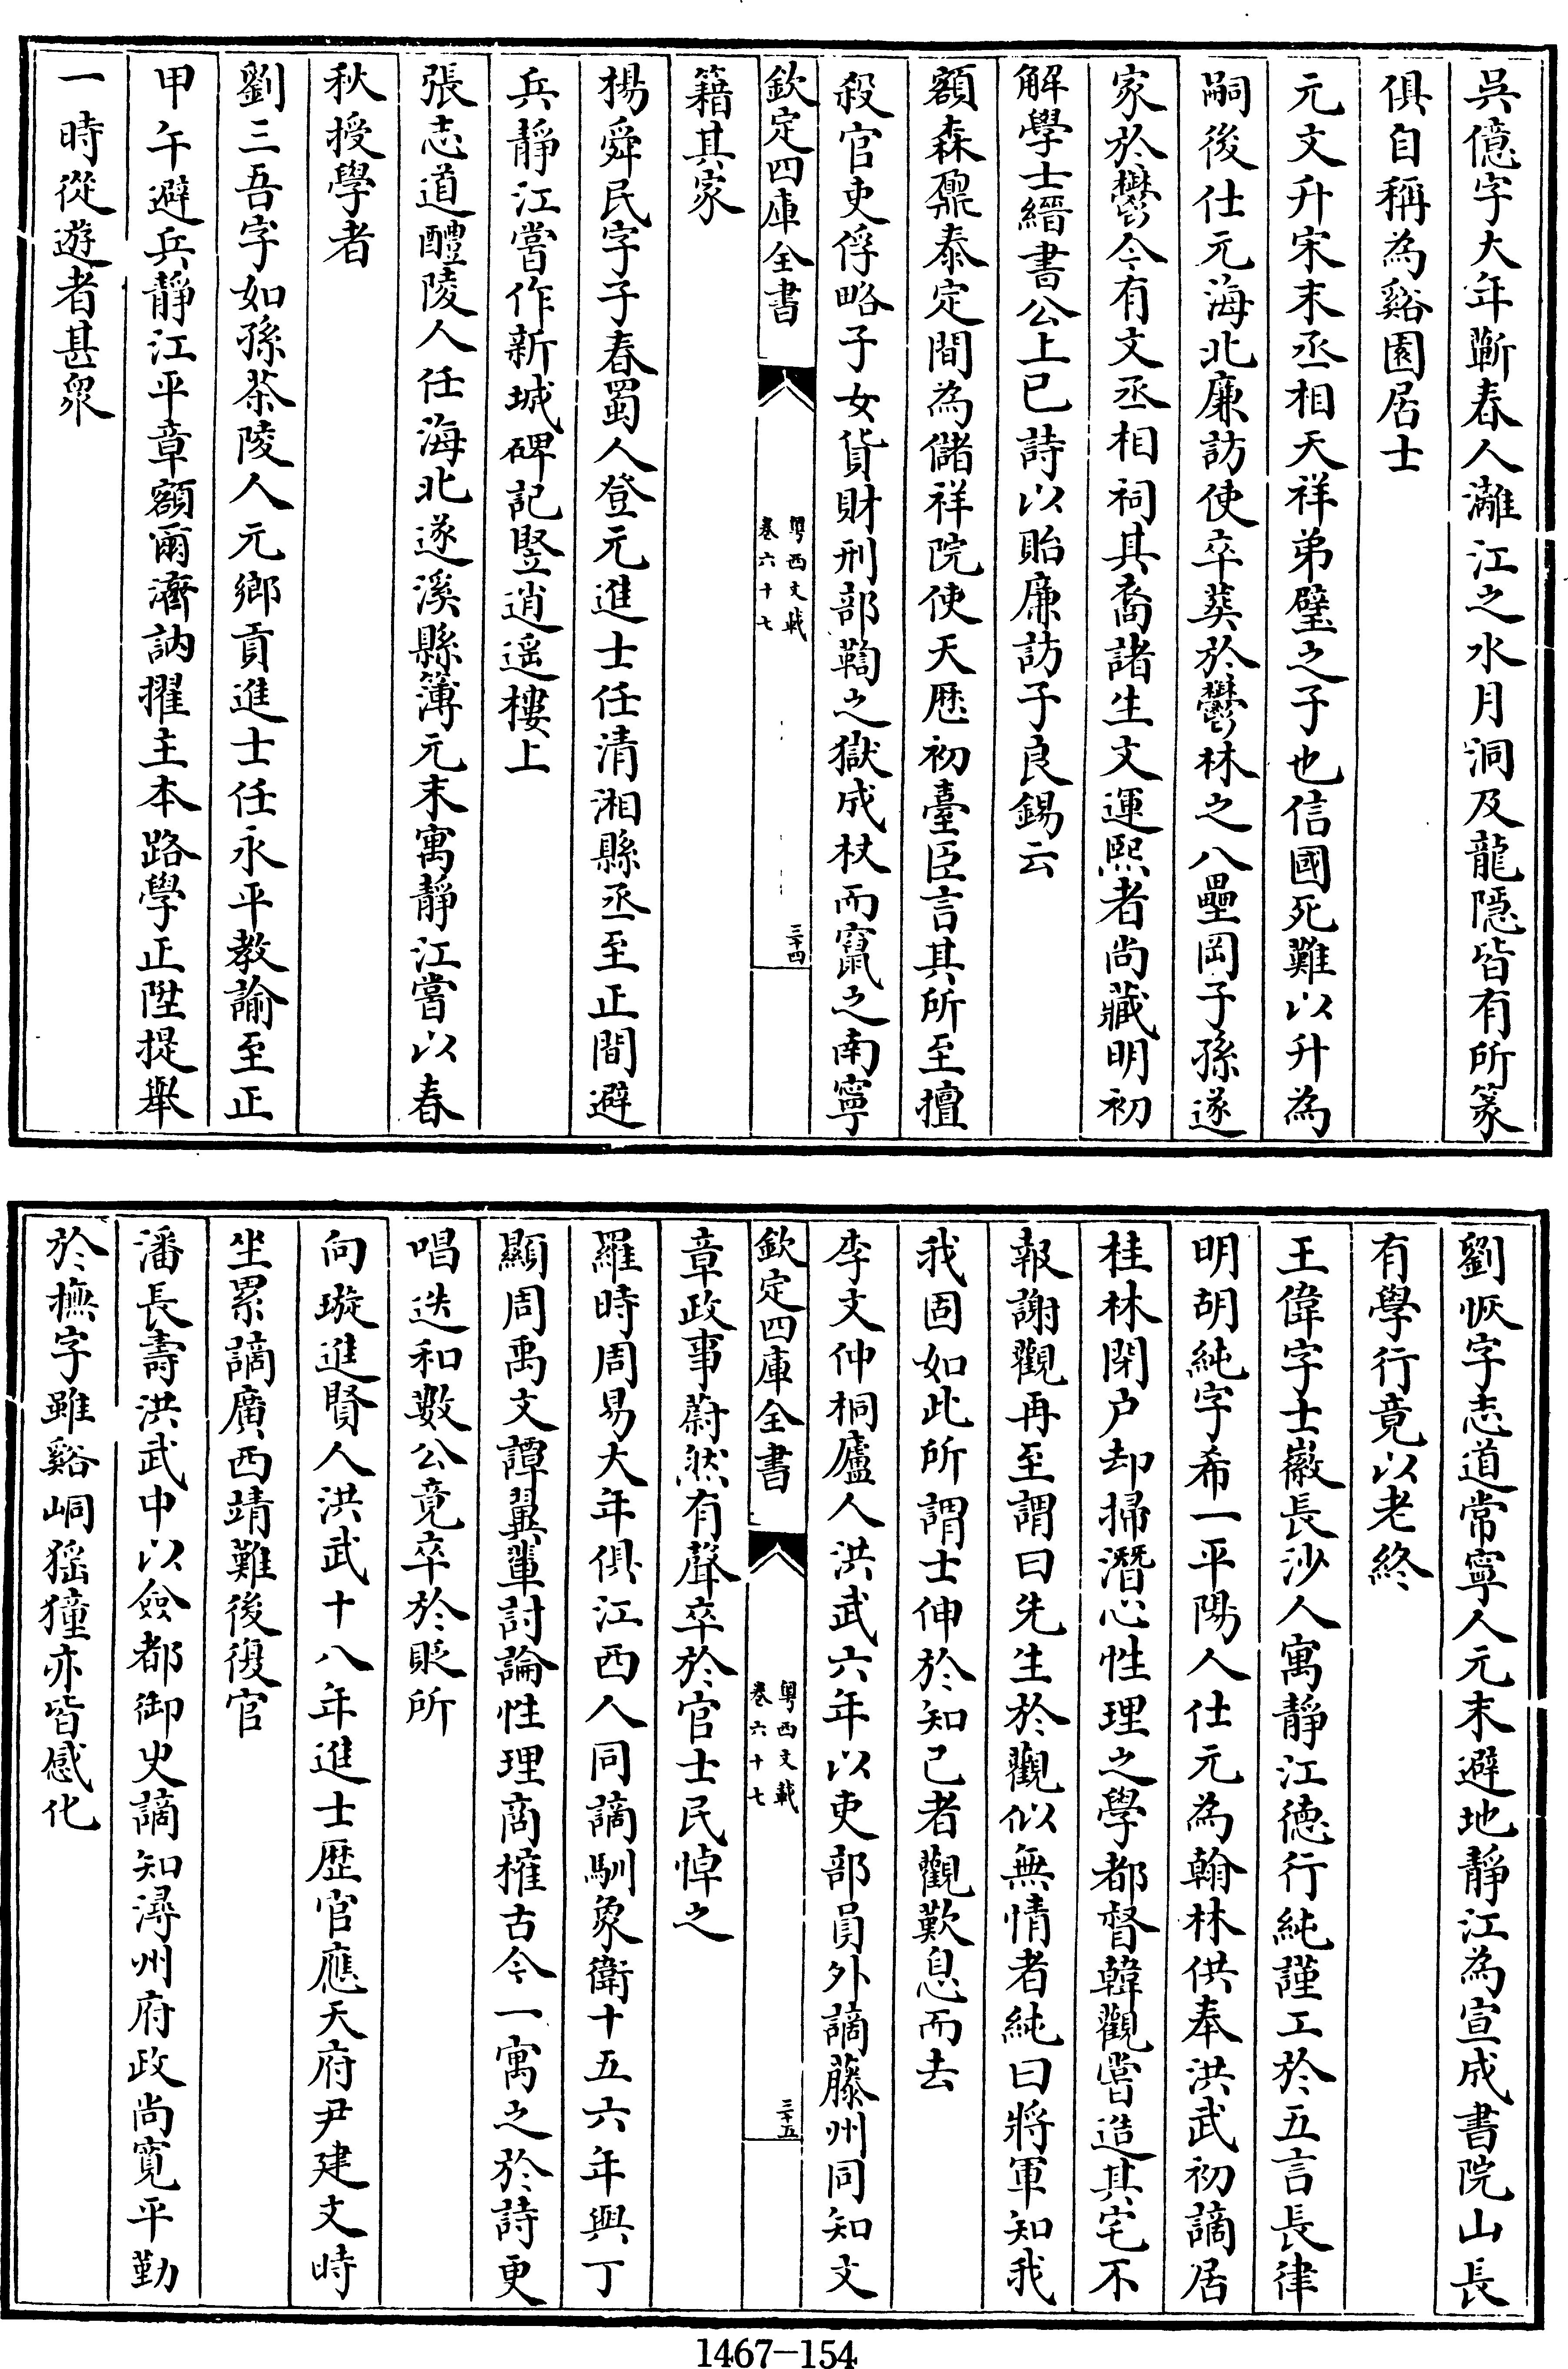 吳億字大年蘄春人灕江之水月洞及龍隠皆有所篆
俱自稱為谿園居士
元文升宋末丞相天祥弟璧之子也信國死難以升為
嗣後仕元海北廉訪使卒葬於鬱林之八壘岡子孫遂
家於鬱今有文丞相祠其裔諸生文運熙者尚藏明初
解學士縉書公上巳詩以貽廉訪子良錫云
額森鼐泰定間為儲祥院使天歷初臺臣言其所至擅
殺官吏俘略子女貨財刑部鞫之獄成杖而竄之南寧
欽定四庫全書
粵西文載
卷六十七
三十四
籍其家
楊舜民字子春蜀人登元進士任清湘縣丞至正間避
兵靜江嘗作新城碑記竪逍遥樓上
張志道醴陵人任海北遂溪縣簿元末寓靜江嘗以春
秋授學者
劉三吾字如孫茶陵人元鄉貢進士任永平教諭至正
甲午避兵靜江平章額爾濟訥擢主本路學正陞提舉
一時從遊者甚衆
劉恢字志道常寧人元末避地靜江為宣成書院山長
有學行竟以老終
王偉字士徽長沙人寓靜江德行純謹工於五言長律
明胡純字希一平陽人仕元為翰林供奉洪武初謫居
桂林閉户却掃潛心性理之學都督韓觀嘗造其宅不
報謝觀再至謂曰先生於觀似無情者純曰將軍知我
我固如此所謂士伸於知己者觀歎息而去
李文仲桐廬人洪武六年以吏部員外謫藤州同知文
欽定四庫全書
粵西文載
卷六十七
三十五
章政事蔚然有聲卒於官士民悼之
羅時周易大年俱江西人同謫馴象衛十五六年與丁
顯周禹文譚翼輩討論性理商搉古今一寓之於詩更
唱迭和數公竟卒於貶所
向璇進賢人洪武十八年進士歷官應天府尹建文時
坐累謫廣西靖難後復官
潘長壽洪武中以僉都御史謫知潯州府政尚寛平勤
於撫字雖谿峒猺獞亦皆感化
1467-154